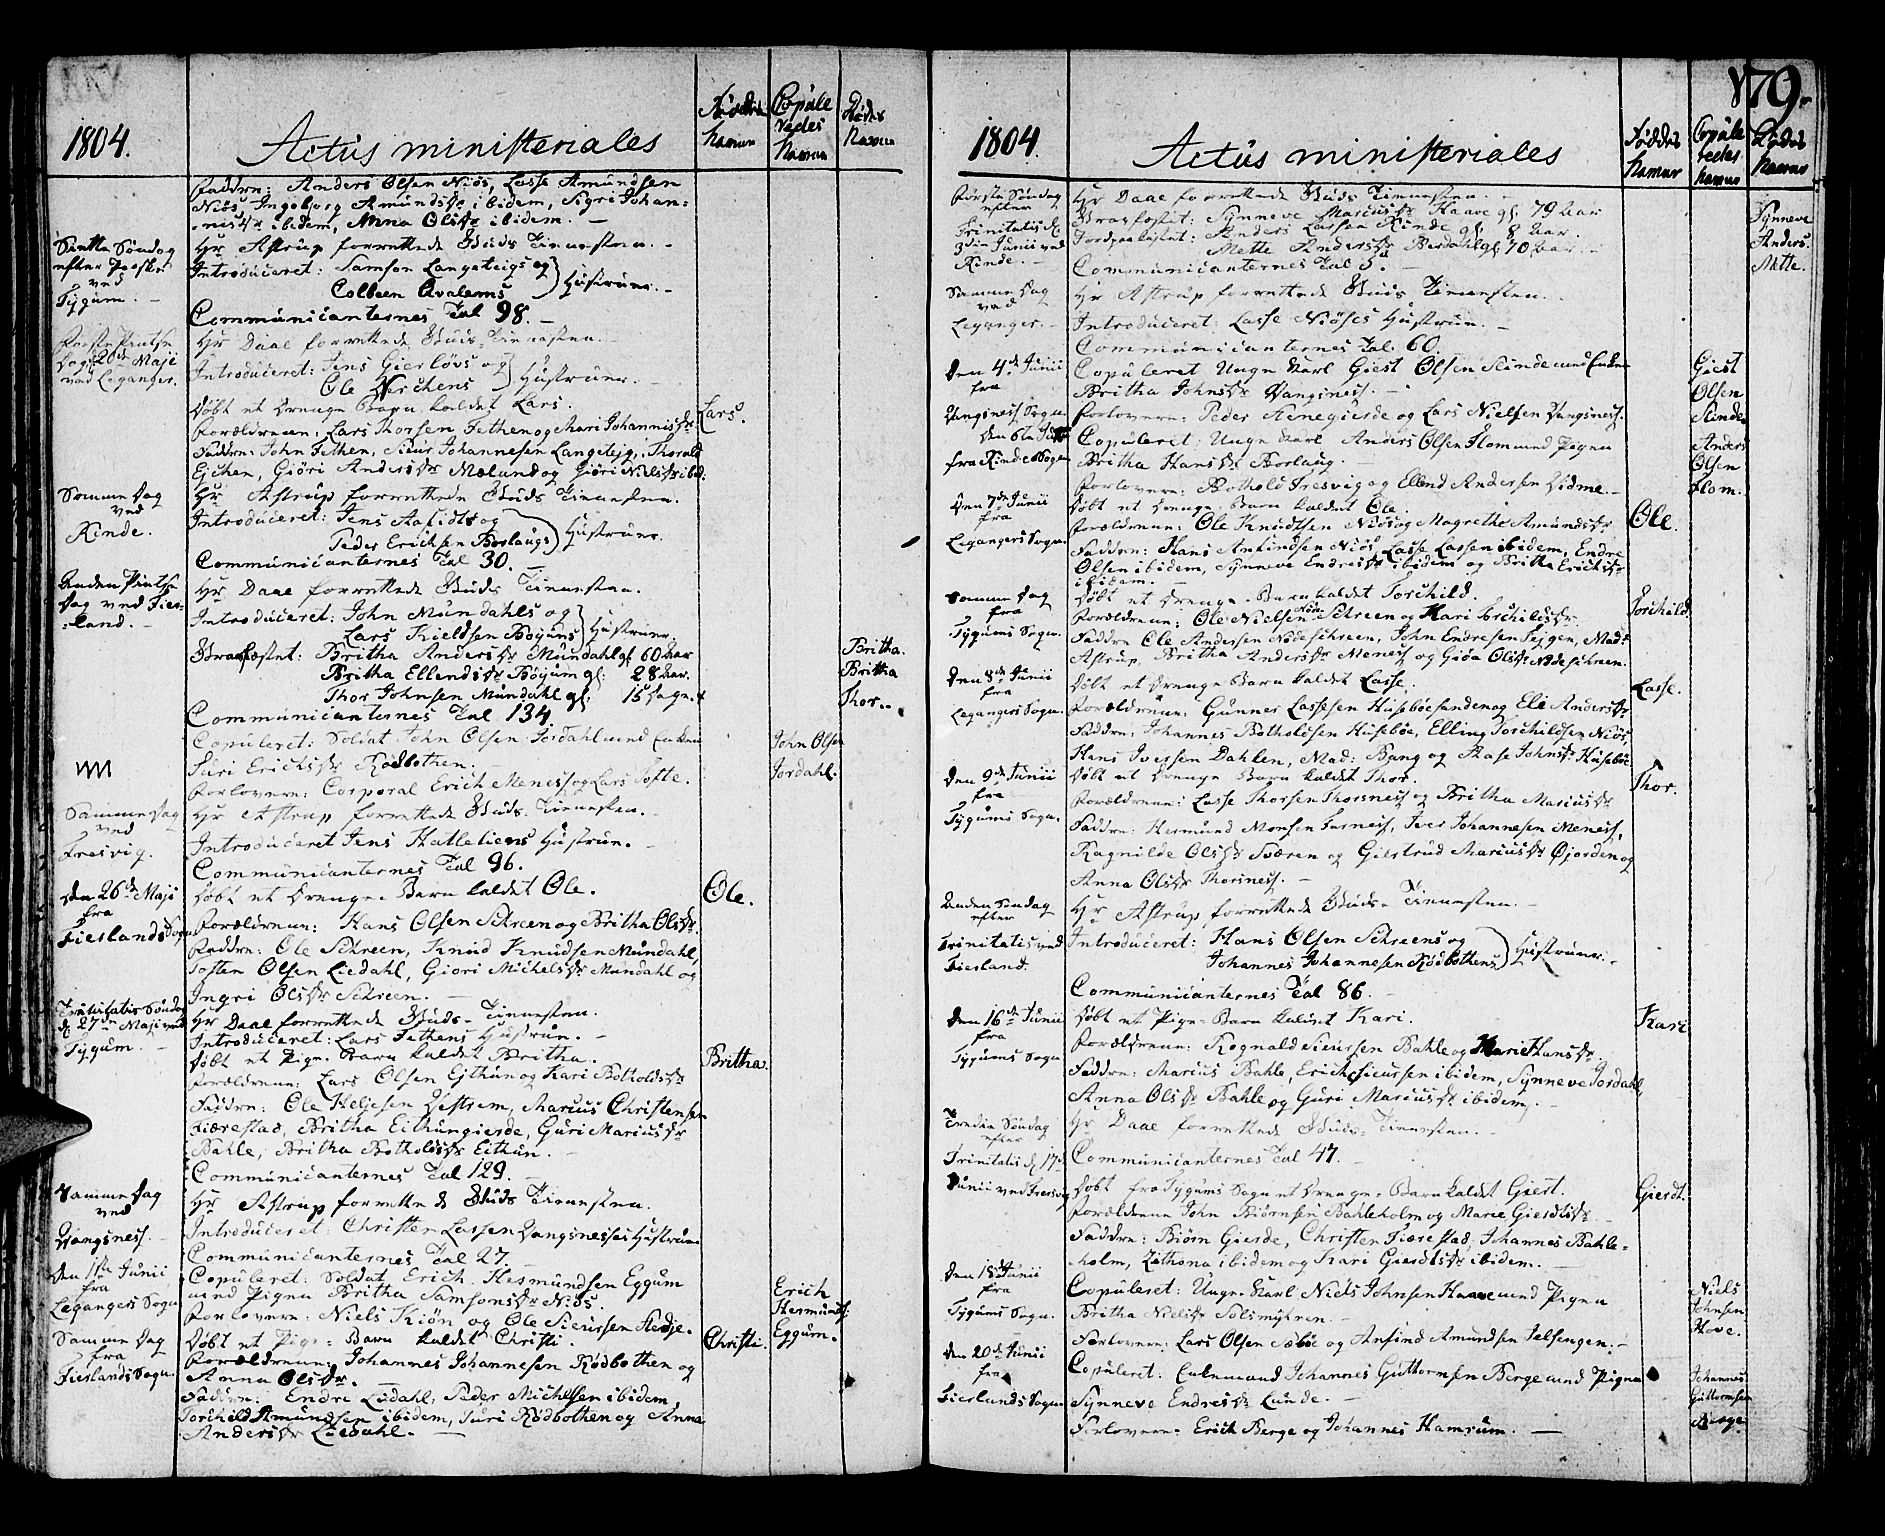 1804.
Actus ministeriales
Fødde
Copule
Døde
Namne
vedes
Navne
Namne
Faddrn: Anders Olsen Niøs, Lasse Amundsen
Niøs Ingeborg Amundsdr ibidem, Sigri Johan-
nisdr ibidem, Anna Olsdr ibidem. —
Siette Søndag
efter Paaske
ved
Tygum. —
Hr Astrup forrettede Guds Tienesten. —
Introduceret: Samson Langeteigs og
Colbeen Qvalems
Hustruer. —
Communicanternes Tal 98. —
Første Pintse
Dag 20de Maji
ved Leganger.
Hr Daae forrettede Guds-Tienesten. —
Introduceret: Jens Gierløvs og
Ole Nerchens
Hustruer. —
Døbt et Drenge Barn kaldet Lars.
Lars.
Forældrene: Lars Thorsen Fethen og Mari Johannisdr
Faddrn: John Fethen, Siur Johannesen Langeteig, Thorald
Ejthen, Giøri Andersdr Mæland og Giøri Nielsdr ibid.
Samme Dag
ved
Rinde.
Hr Astrup forrettede Guds Tienesten.
Introduceret: Jens Aafedts og
Peder Erichsen Borlaugs
Hustruer.
Communicanternes Tal 30. —
Anden Pintse
Dag ved Fier-
land. —
Hr Daae forrettede Guds Tienesten.
Introduceret: John Mundahls og
Lars Kieldsen Bøyums
Hustruer.
Gravfæstet: Britha Andersdr Mundahl gl 60 Aar
Britha.
Britha Ellendsdr Bøyum gl: 28 Aar.
Britha
Thor Johnsen Mundahl gl: 15 Dage.
Thor..
Communicanternes Tal 134
Copuleret: Soldat John Olsen Jordahl med Enken
John Olsen
Siri Erichsdr Rødbothen. —
Jordahl.
Forlovere: Corporal Erich Menes og Lars Tofte.
Samme Dag
ved
Fresvig.
Hr Astrup forrettede Guds Tienesten. —
Introduceret Jens Hatleliens Hustrue. —
Communicanternes Tal 96.
Den 26de Maji
fra
Fierlands Sogn
Døbt et Drenge Barn kaldet Ole.
Ole.
Forældrene: Hans Olsen Schreen og Britha Olsdr.
Faddrn: Ole Schreen, Knud Knudsen Mundahl,
Tosten Olsen Liedahl, Giøri Michelsdr Mundahl og
Ingri Olsdr Schreen. —
Trinitatis Søndag
d. 27de Maji ved
Tygum. —
Hr Daae forrettede Guds-Tienesten.
Introduceret: Lars Fethens Hustrue. —
Døbt et Pige Barn kaldet Britha.
Britha.
Forældrene: Lars Olsen Ejthun og Kari Botholdsdr
Faddrn: Ole Heljesen Vestrem, Marcus Christensen
Fiærestad, Britha Eithungierde, Guri Marcusdr
Bahle, Britha Botholdsdr Eithun. —
Communicanternes Tal 129. —
Samme Dag
ved
Vangsnes. —
Hr Astrup forrettede Guds Tienesten.
Introduceret Christen Lassen Vangsneses Hustrue
Communicanternes Tal 27. —
Den 1ste Junii
fra
Legangers Sogn
Copuleret: Soldat Erich Hermundsen Eggum
med Pigen Britha Samsonsdr Niøs.
Erich
Hermunds:
Eggum.
Forlovere: Niels Kiøn og Ole Sieursen Stedje.
Samme Dag
fra
Fierlands Sogn.
Døbt et Pige-Barn kaldet Christi.
Christi.
Forældrene: Johannes Johannesen Rødbothen og
Anna Olsdr. —
Faddrn: Endre Liedahl, Peder Michelsen ibidem,
Torchild Amundsen ibidem, Turi Rødbothen og Anna
Andersdr Liedahl. —
179.
1804.
Actus ministeriales
Føddes
Namne
Copule
redes
Namne
Dødes
Namne
Første Søndag
efter
Trinitatis d.
3die Junii ved
Rinde. —
Hr Daae forrettede Guds Tienesten. —
Gravfæstet: Synneve Marcusdr Haave gl. 79 Aar
Synneve
Jordpaakastet: Anders Lassen Rinde gl: 8 Aar.
Anders.
Mette Andersdr Berdahl gl 70 Aar
Mette.
Communicanternes Tal 5. —
Samme Dag
ved
Leganger. —
Hr Astrup forrettede Guds Tienesten. —
Introduceret: Lasse Niøses Hustrue. —
Communicanternes Tal. 60.
Den 4de Junii
fra
Vangsness Sogn.
Copuleret Unge Karl Giest Olsen Slinde med Enken
Britha Johnsdr Vangsness. —
Giest
Olsen
Slinde
Forlovere: Peder Fenegierde og Lars Nielsen Vangsness.
Den 6te Junii
fra Rinde Sogn
Copuleret: Unge Karl Anders Olsen Flom med Pigen
Britha Hansdr Borlaug.
Anders
Olsen
Flom.
Forlovere: Bothold Fresvig og Ellend Andersen Vidme. —
Den 7de Junii
fra
Legangers Sogn.
Døbt et Drenge Barn kaldet Ole.
Ole.
Forældrene: Ole Knudtsen Niøs og Magrethe Amundsdr
Faddrn: Hans Amundsen Niøs, Lasse Lassen ibidem, Endre
Olsen ibidem, Synneve Endresdr ibidem og Britha Erichsdr
ibidem. —
Samme Dag
fra
Tygums Sogn.
Døbt et Drenge-Barn kaldet Torchild.
Torchild.
Forældrene: Ole Nielsen Nøde Schreen og Kari Torchildsdr.
Faddrn Ole Andersen Nødeschreen, John Endresen Feygen, Mad:
Astrup, Britha Andersdr Menes og Gida Olsdr. Nødeschreen.
Den 8de Junii
fra
Legangers Sogn.
Døbt et Drenge Barn kaldet Lasse.
Lasse.
Forældrene: Gunner Lassesen Husebøesanden og Eli Andersdr
Faddrn: Johannes Botholdsen Husebøe, Elling Torchildsen Niøs,
Hans Iversen Dahlen, Mad: Bang og Aase Johnsdr Husebøe
Den 9de Junii
fra
Tygums Sogn.
Døbt et Drenge Barn kaldet Thor.
Thor.
Forældrene: Lasse Thorsen Thorsnes og Britha Marcusdr
Faddrn: Hermund Monsen Furnes, Iver Johannesen Menes,
Ragnilde Olsdr Sværen og Giertrud Marcusdr Øjorden og
Anna Olsdr Thorsnes. —
Anden Søndag
efter
Trinitatis ved
Fierland.
Hr Astrup forrettede Guds-Tienesten. —
Introduceret: Hans Olsen Schreens og
Johannes Johannesen Rødbothens
Hustruer. —
Communicanternes Tal 86. —
Den 16de Junii
fra
Tygums Sogn
Døbt et Pige-Barn kaldet Kari.
Kari
Forældrene: Rognald Sieursen Bahle og Marie Hansdr.
Faddrn: Marcus Bahle, Erich Sieursen ibidem, Synneve Jordahl,
Anna Olsdr Bahle og Guri Marcusdr ibidem. —
Tredie Søndag
efter
Trinitatis d. 17de
Junii ved Fresvig
Hr Daae forrettede Guds-Tienesten. —
Communicanternes Tal 47. —
Døbt fra Tygums Sogn et Drenge-Barn kaldet Giert.
Gierdt.
Forældrene John Biørnsen Bahleholm og Marie Gierdtsdr —
Faddrn: Biørn Gierde, Christen Fiærestad, Johannes Bahle-
holm, Zithona ibidem og Kari Gierdtsdr ibidem. —
Den 18de Junii
fra
Tygums Sogn.
Copuleret: Unge-Karl Niels Johnsen Haave med Pigen
Britha Nielsdr Solsmyhren. —
Niels
Johnsen
Hove.
Forlovere: Lars Olsen Sæbøe og Anfind Amundsen Jelsengen. —
Den 20de Junii
fra
Fierlands Sogn
Copuleret: Enkemand Johannes Guttormsen Berge med Pigen
Synneve Endresdr Lunde. —
Johannes
Guttormsen
Berge
Forlovere. Erich Berge og Johannes Hamrum. —